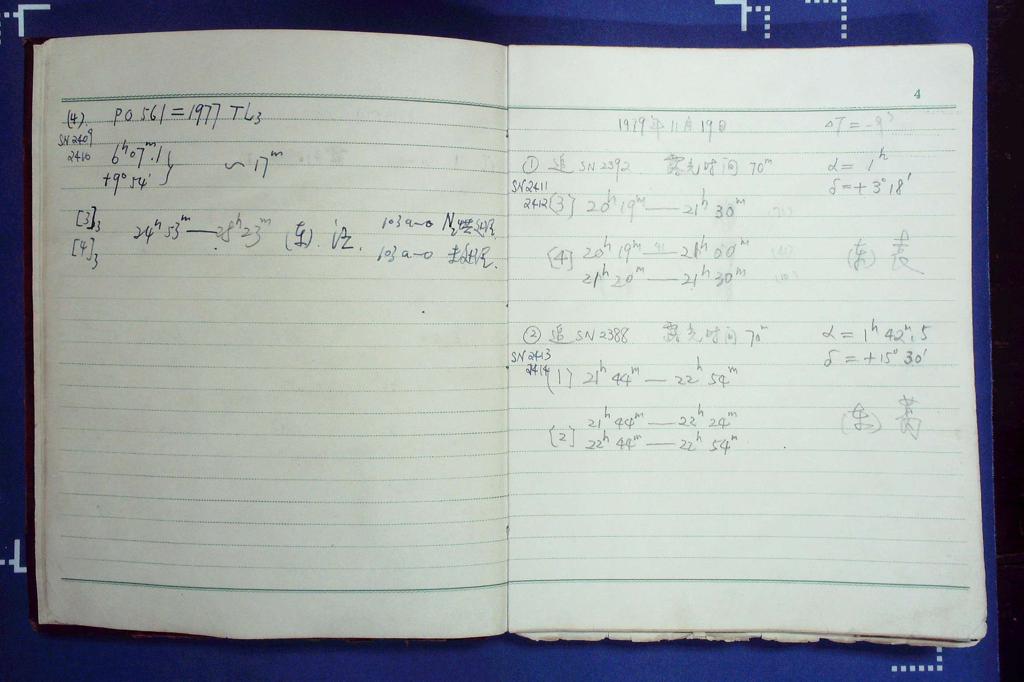 (4). PO 561 = 1977 TL3
SN 2409
2410
6h 07m.1
+9° 54′
~ 17m
[3]3
[4]3
24h 53m — 28h 23m (东).
103a-O N2
103a-O
4
1979年11月19日 ΔT = -9s
① 追 SN 2392 露光时间 70m α = 1h
δ = +3° 18′
SN 2411
2412
[3] 20h 19m — 21h 30m
[4] 20h 19m — 21h 00m (东)
21h 20m — 21h 30m
② 追 SN 2388 露光时间 70m α = 1h 42m.5
δ = +15° 30′
SN 2413
2414
[1] 21h 44m — 22h 54m
[2] 21h 44m — 22h 24m (东)
22h 44m — 22h 54m